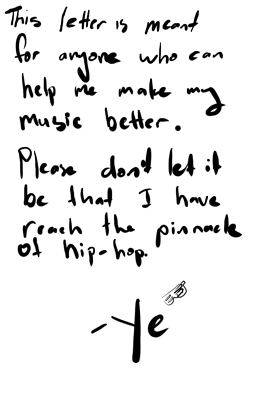 This letter is meant
for anyone who can
help me make my
music better.
Please don't let it
be that I have
reach the pinnacle
of hip-hop.
-Ye